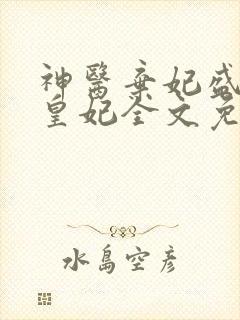 神醫棄妃盛
皇妃全文免
水島空彦